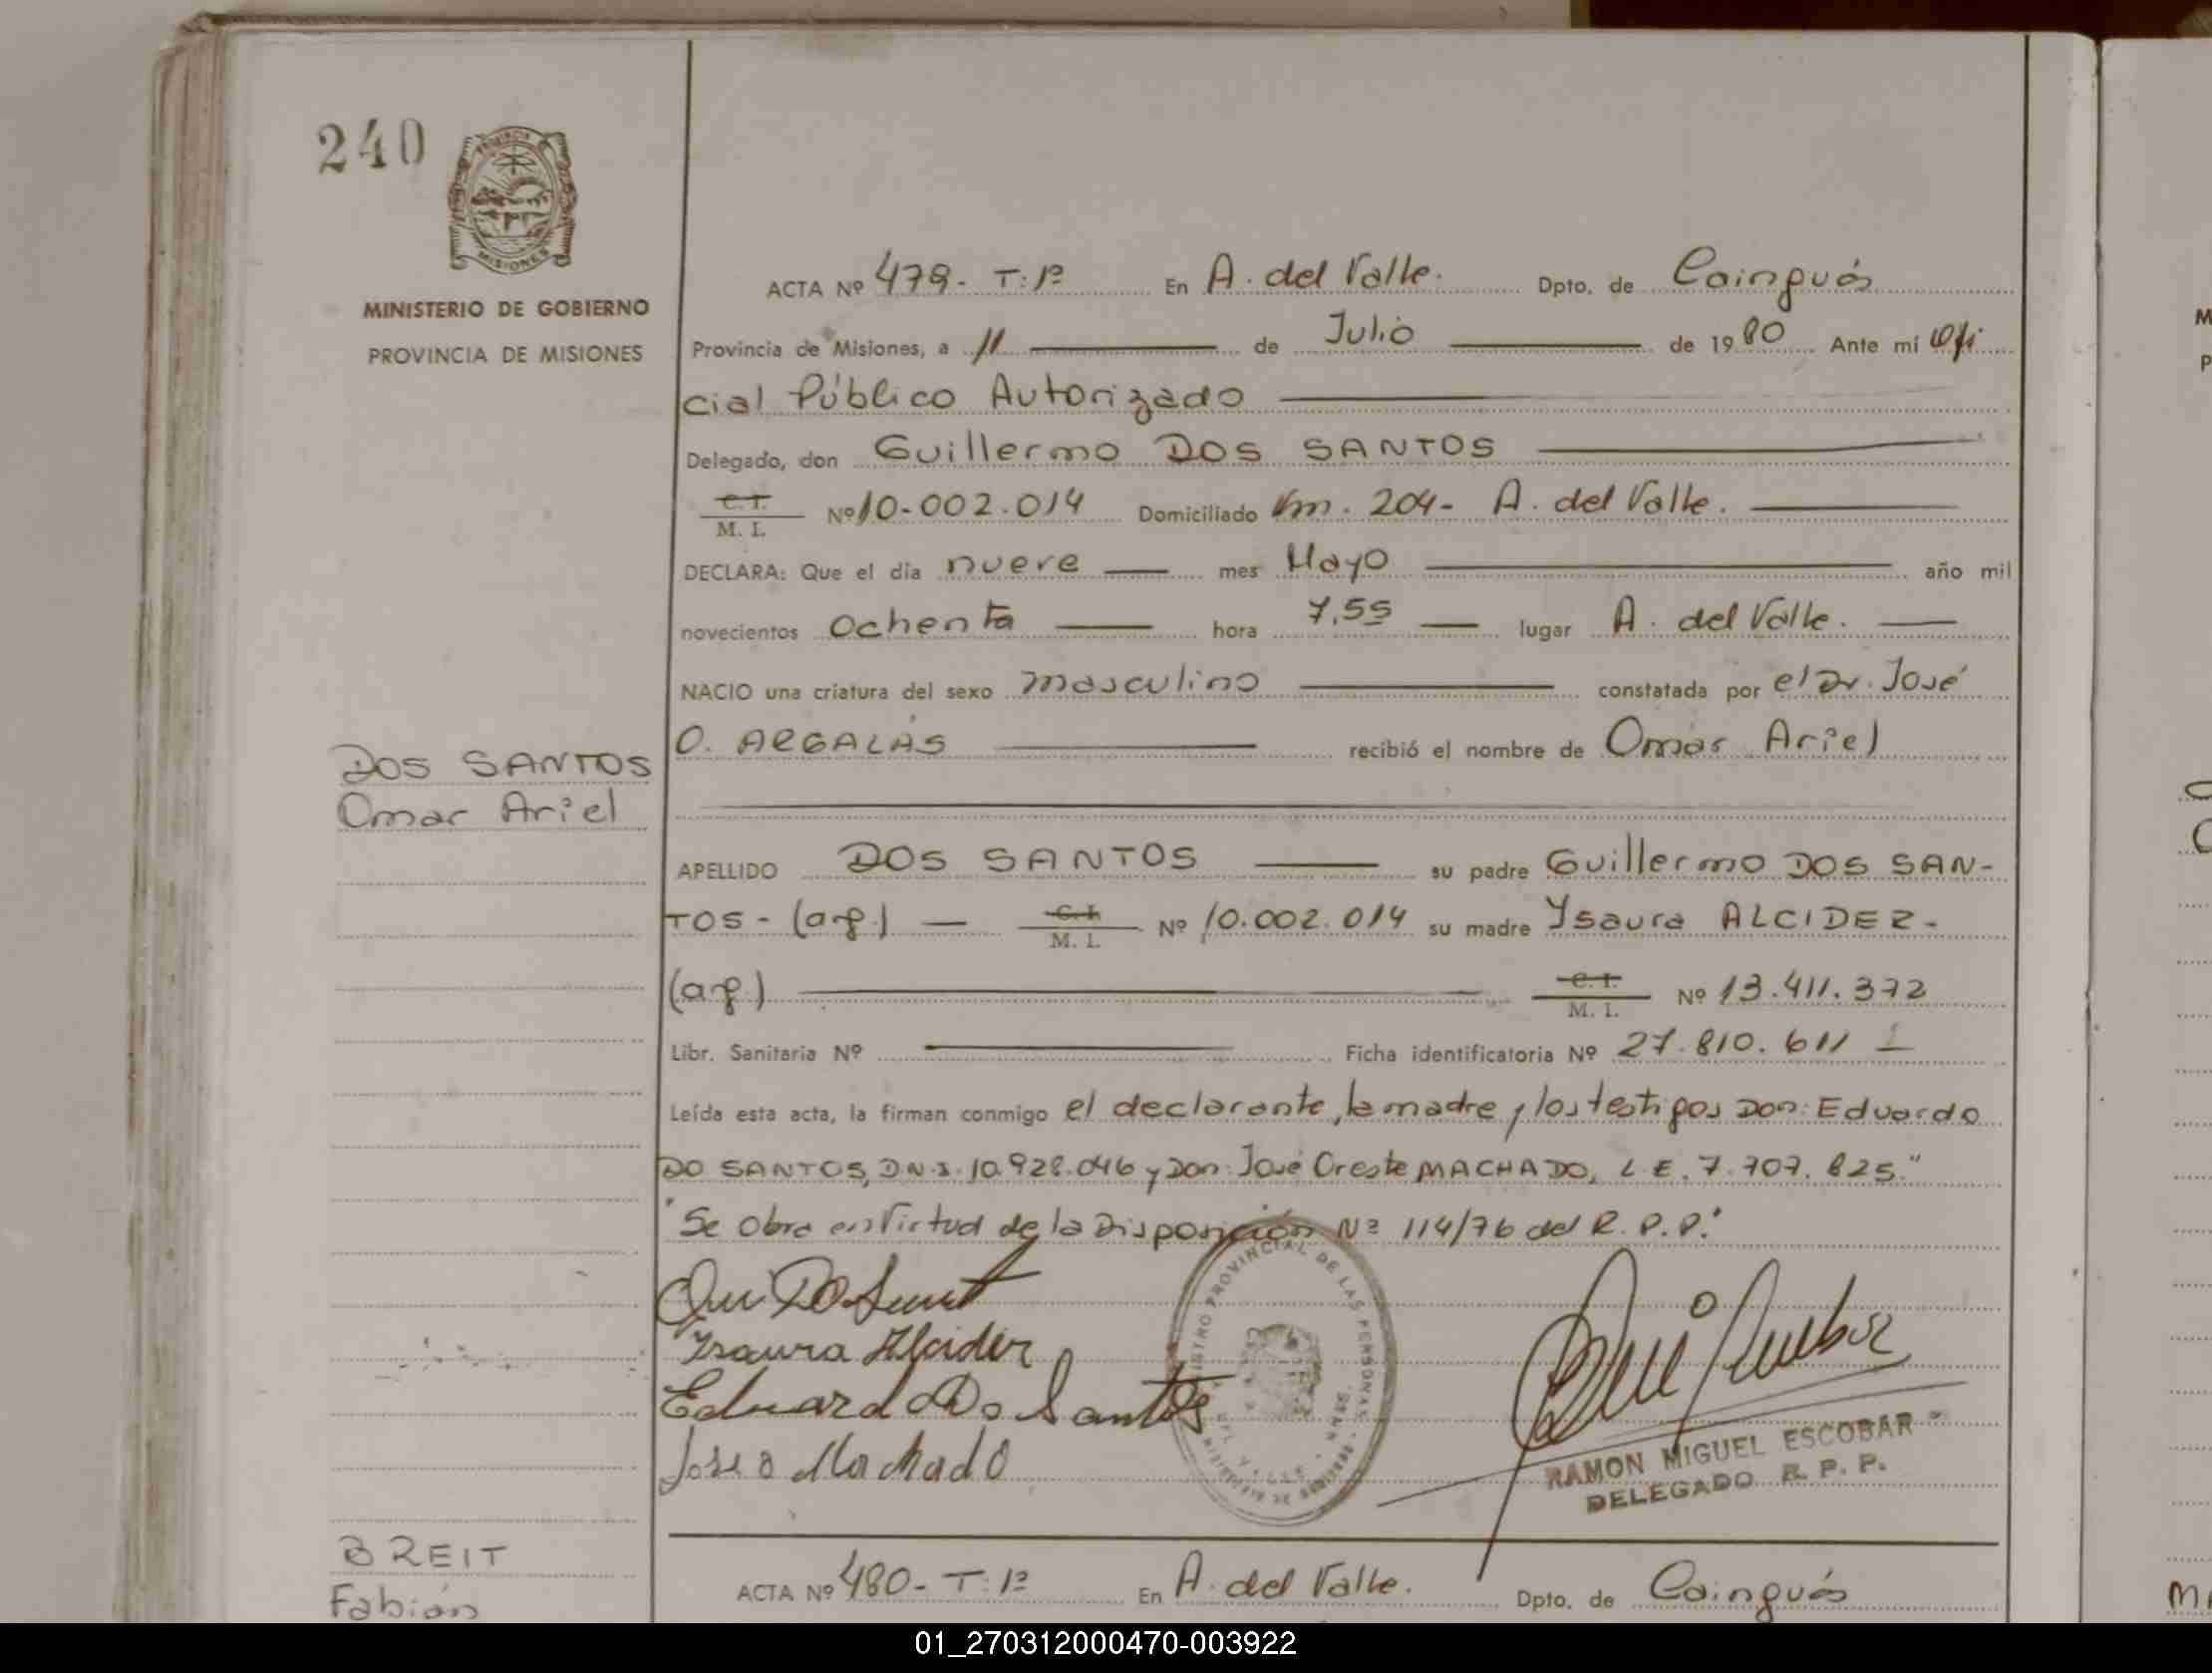 240
PROVINCIA
MISIONES
MINISTERIO DE GOBIERNO
PROVINCIA DE MISIONES
ACTA Nº 479- T: 1º En A. del Valle. Dpto. de Cainguás
Provincia de Misiones, a 11 de Julio de 1980 Ante mí Ofi
cial Público Autorizado
Delegado, don Guillermo DOS SANTOS
C. I.
M. I. Nº 10-002.014 Domiciliado Km. 204- A. del Valle.
DECLARA: Que el día nueve mes Mayo año mil
novecientos ochenta hora 7,55 lugar A. del Valle.
NACIO una criatura del sexo masculino constatada por el Dr. José
O. ARGALÁS recibió el nombre de Omar Ariel
DOS SANTOS
Omar Ariel
APELLIDO DOS SANTOS su padre Guillermo DOS SAN-
TOS - (arg.) C. I. M. I. Nº 10.002.014 su madre Ysaura ALCIDER-
(arg.) C. I. M. I. Nº 13.411.372
Libr. Sanitaria Nº Ficha identificatoria Nº 27.810.611
Leída esta acta, la firman conmigo el declarante, la madre y los testigos Don: Eduardo
DO SANTOS, D.N.I. 10.928.046 y Don: José Oreste MACHADO, L.E. 7.707.825."
"Se obra en Virtud de la Disposición Nº 114/76 del R.P.P."
Ysaura Alcider
Eduardo Do Santos
José O Machado
REGISTRO PROVINCIAL DE LAS PERSONAS
DEL VALLE
RAMON MIGUEL ESCOBAR
DELEGADO R. P. P.
BREIT
Fabián
ACTA Nº 480- T: 1º En A. del Valle. Dpto. de Cainguás
01_270312000470-003922